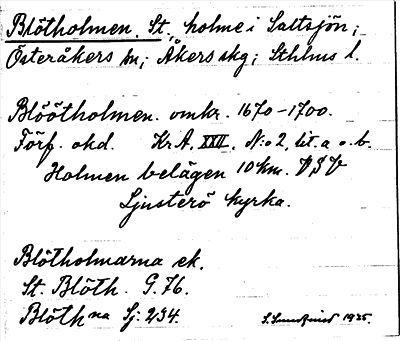 Blötholmen. St., holme i Saltsjön;
Österåkers sn; Åkers skg; Sthlms l.
Blöötholmen. omkr. 1670-1700.
Förf. okd. Kr.A. XXII. N:o 2, lit. a o. b.
Holmen belägen 10 km. V S V
Ljusterö kyrka.
Blötholmarna ek.
St. Blöth. G. 76.
Blöth na Sj: 234.
S. Sundquist 1935.